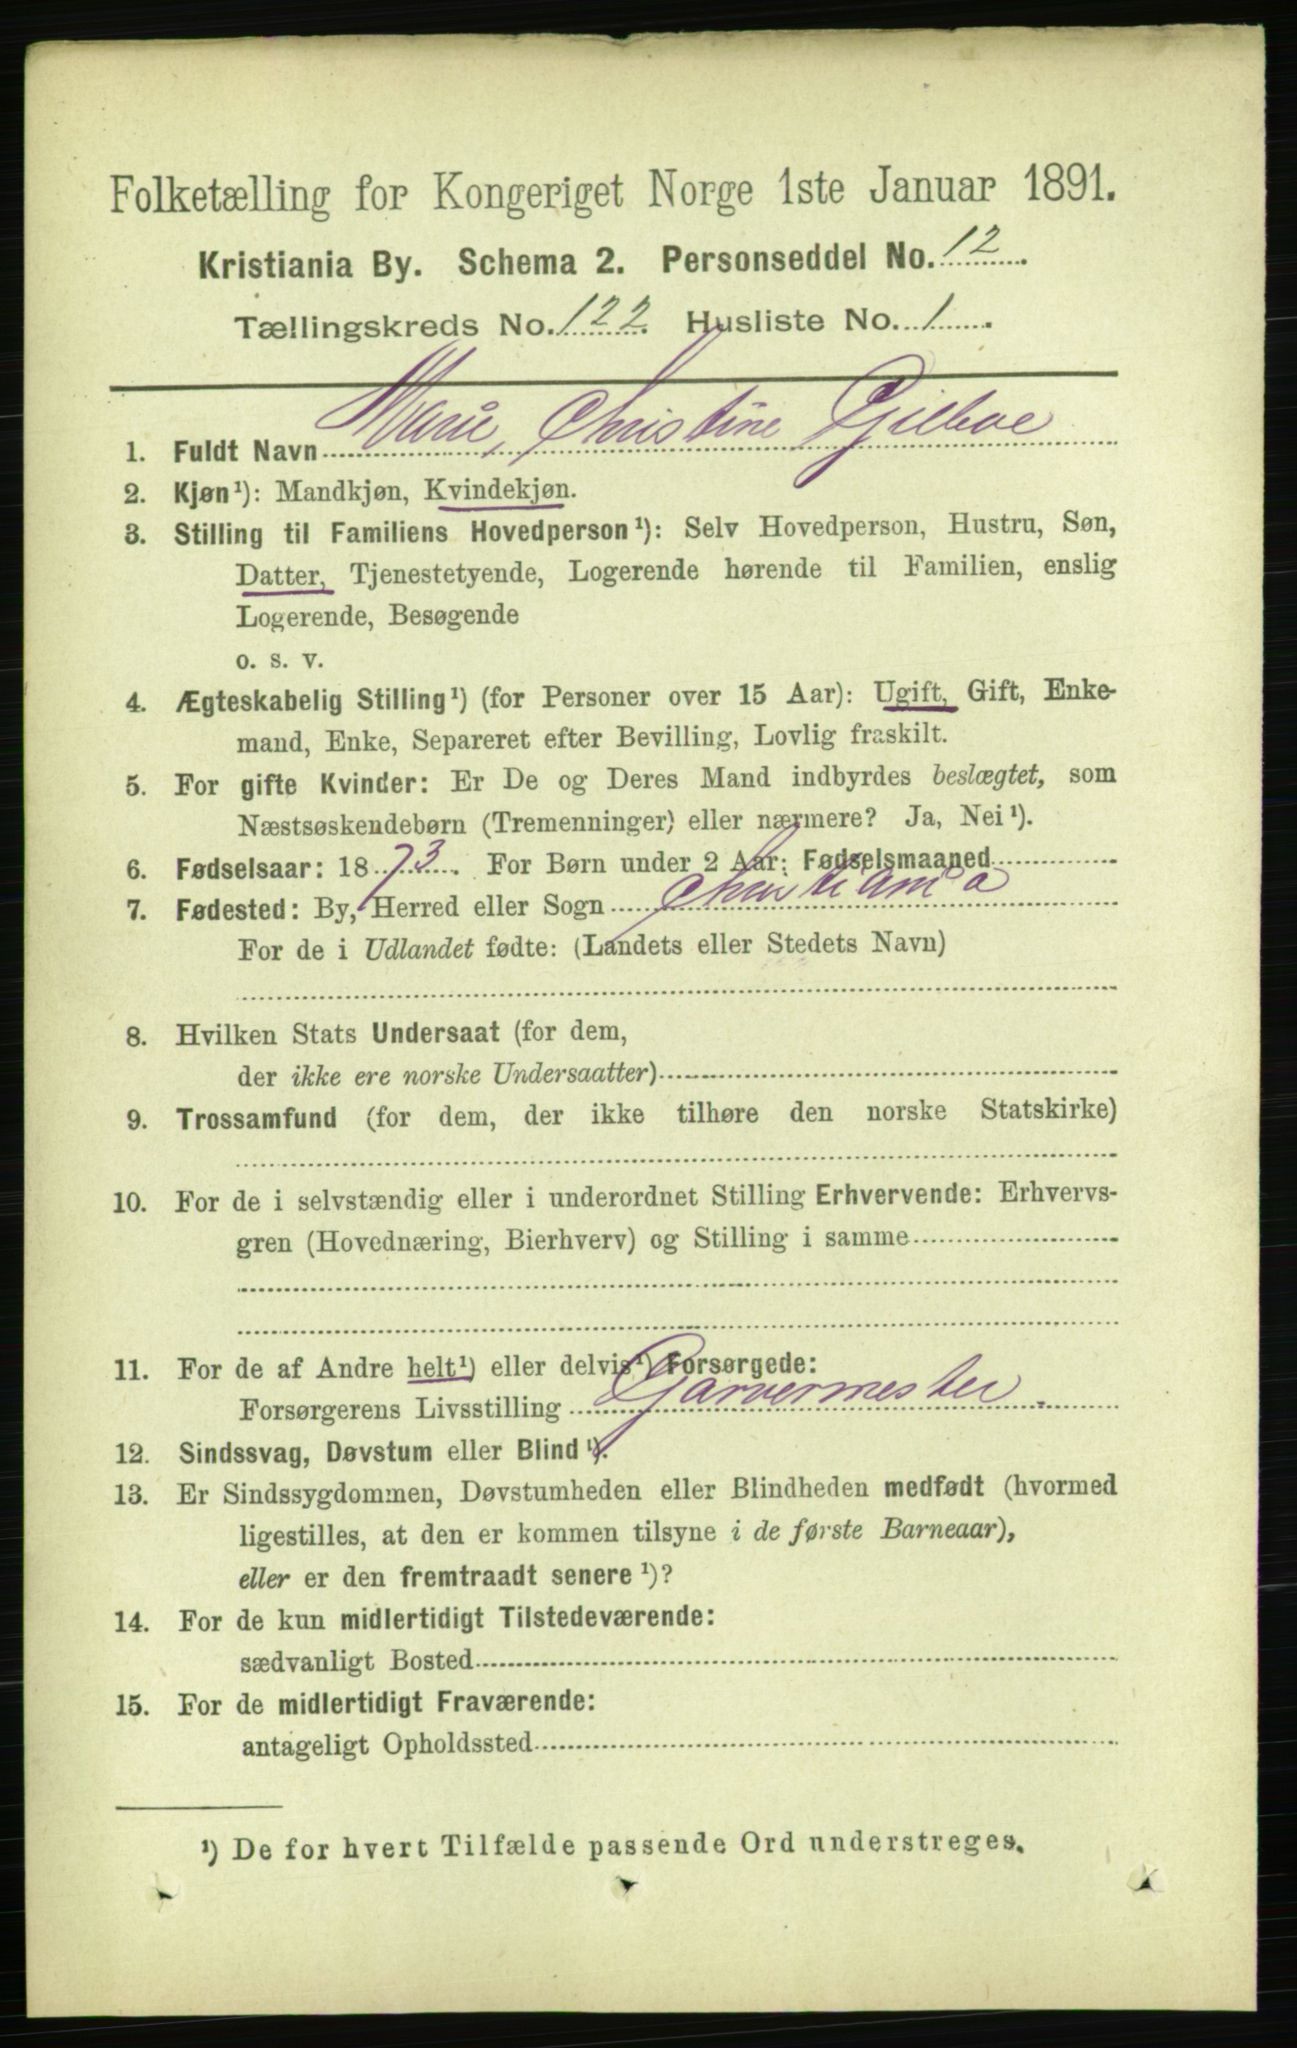 Folketælling for Kongeriget Norge 1ste Januar 1891.
Kristiania By. Schema 2. Personseddel No. 12.
Tællingskreds No. 122. Husliste No. 1.
1. Fuldt Navn Marie Christine Gjeboe
2. Kjøn¹): Mandkjøn, Kvindekjøn.
3. Stilling til Familiens Hovedperson¹): Selv Hovedperson, Hustru, Søn,
Datter, Tjenestetyende, Logerende hørende til Familien, enslig
Logerende, Besøgende
o. s. v.
4. Ægteskabelig Stilling¹) (for Personer over 15 Aar): Ugift, Gift, Enke-
mand, Enke, Separeret efter Bevilling, Lovlig fraskilt.
5. For gifte Kvinder: Er De og Deres Mand indbyrdes beslægtet, som
Næstsøskendebørn (Tremenninger) eller nærmere? Ja, Nei¹).
6. Fødselsaar: 1873. For Børn under 2 Aar: Fødselsmaaned
7. Fødested: By, Herred eller Sogn Christiania
For de i Udlandet fødte: (Landets eller Stedets Navn)
8. Hvilken Stats Undersaat (for dem,
der ikke ere norske Undersaatter)
9. Trossamfund (for dem, der ikke tilhøre den norske Statskirke)
10. For de i selvstændig eller i underordnet Stilling Erhvervende: Erhvervs-
gren (Hovednæring, Bierhverv) og Stilling i samme
11. For de af Andre helt¹) eller delvis¹) Forsørgede:
Forsørgerens Livsstilling Garvermester.
12. Sindssvag, Døvstum eller Blind¹).
13. Er Sindssygdommen, Døvstumheden eller Blindheden medfødt (hvormed
ligestilles, at den er kommen tilsyne i de første Barneaar),
eller er den fremtraadt senere¹)?
14. For de kun midlertidigt Tilstedeværende:
sædvanligt Bosted
15. For de midlertidigt Fraværende:
antageligt Opholdssted
¹) De for hvert Tilfælde passende Ord understreges.